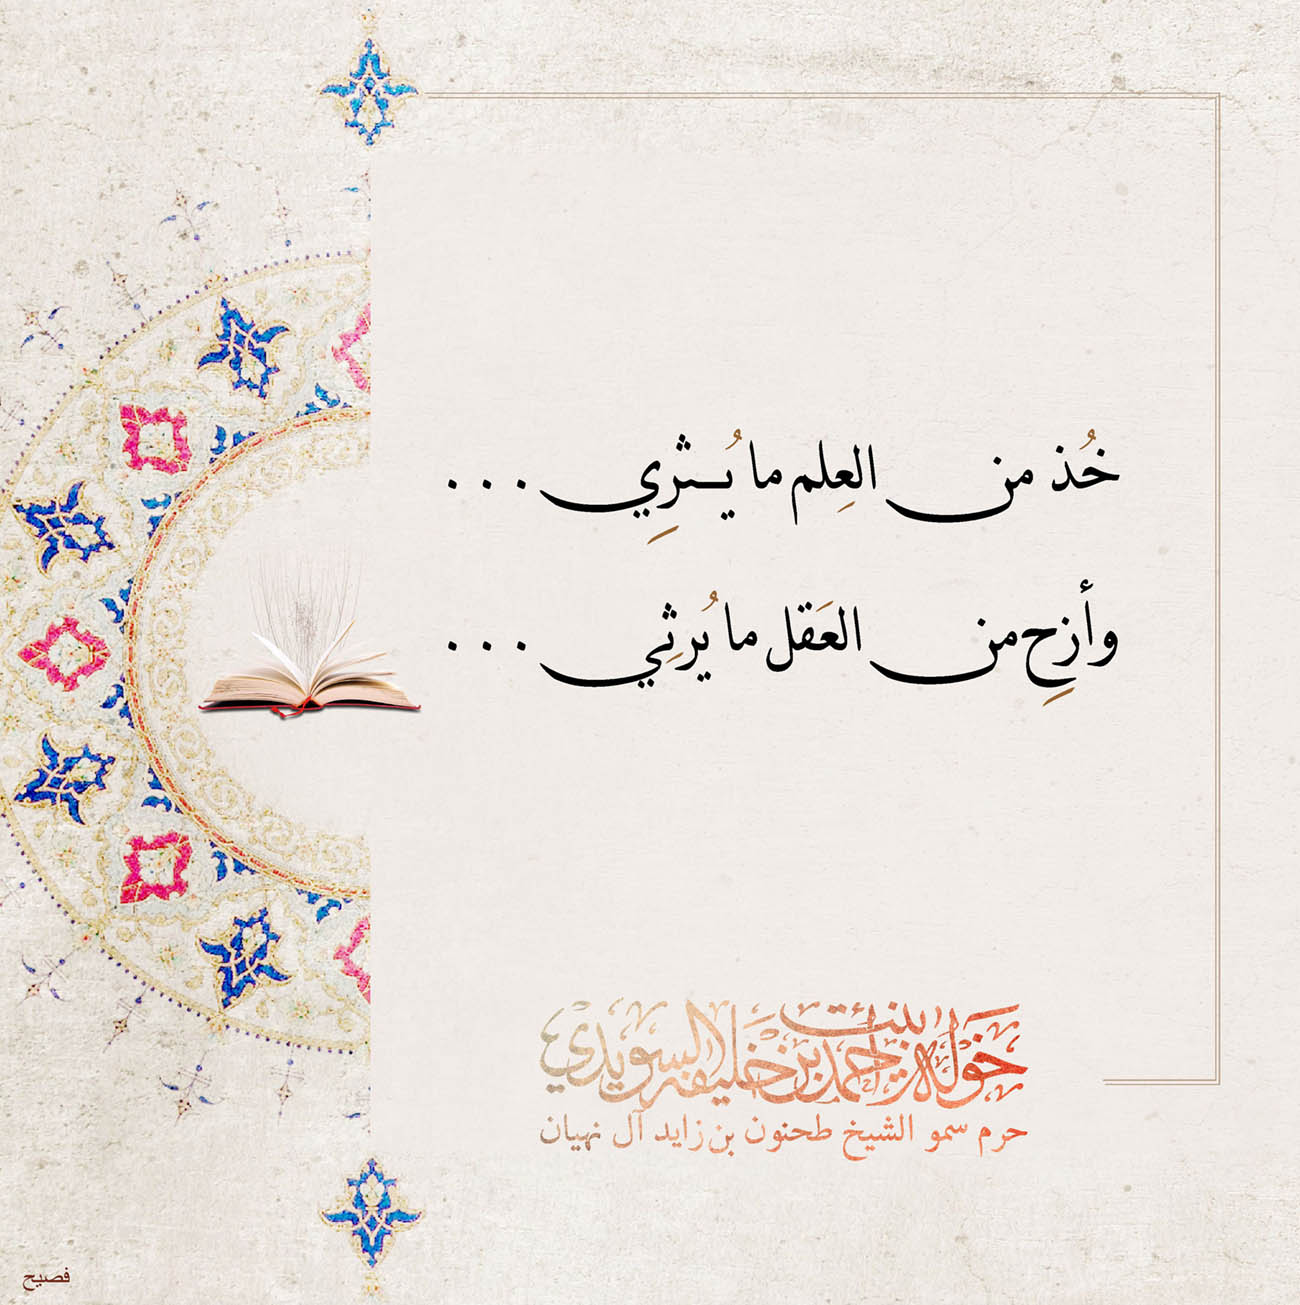 خُذ من العِلم ما يُثرِي ...
وأزِح من العَقل ما يُرثِي ...
خولة بنت أحمد بن خليفة السويدي
حرم سمو الشيخ طحنون بن زايد آل نهيان
فصيح